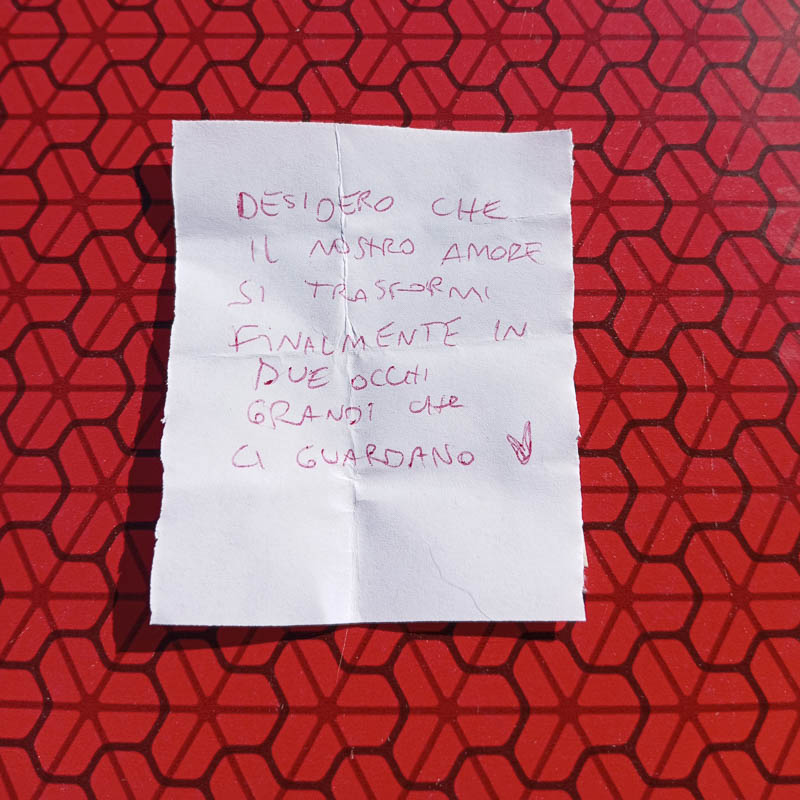 DESIDERO CHE
IL NOSTRO AMORE
SI TRASFORMI
FINALMENTE IN
DUE OCCHI
GRANDI CHE
CI GUARDANO